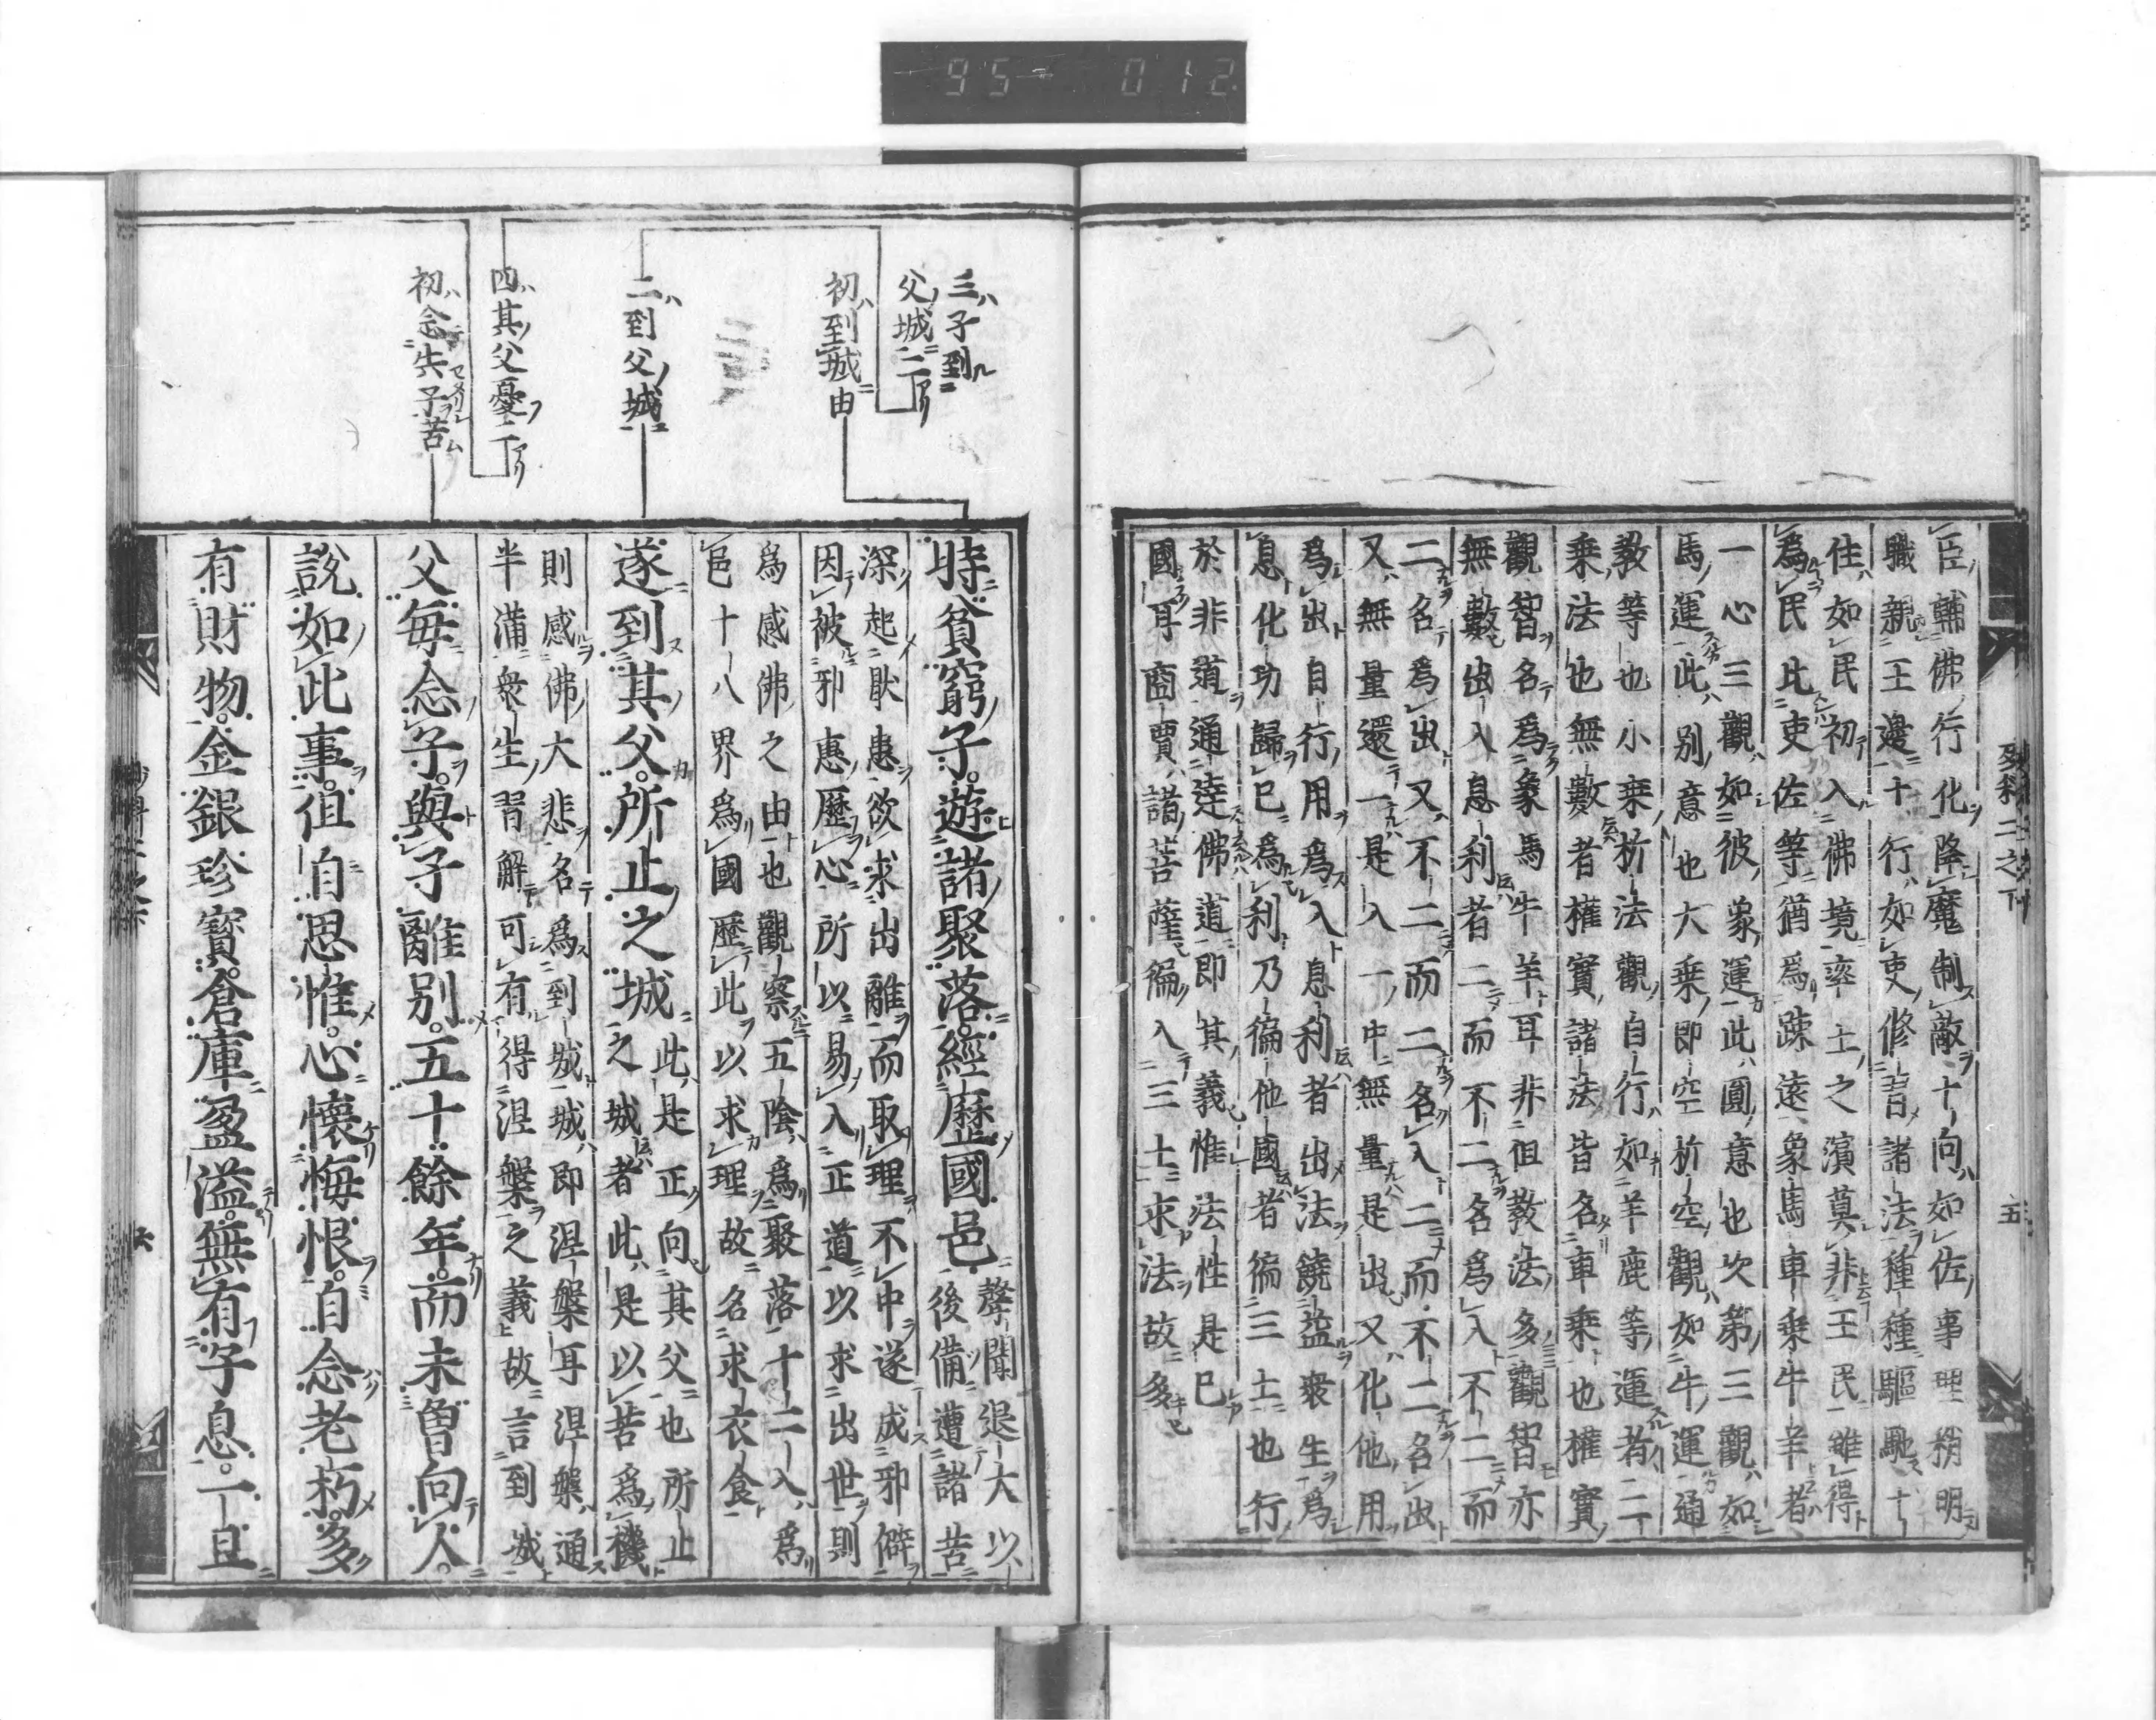 臣輔佛行化降魔制敵十向如佐事理稍明
職親王邊十行如吏修習諸法種種驅馳十
住如民初入佛境率土之濱莫非王民雖得
爲民比吏佐等猶爲疎遠象馬車乘牛羊者
一心三觀如彼象運此圓意也次第三觀如
馬運此別意也大乘即空析空觀如牛運通
教等也小乘析法觀自行如羊鹿等運者二
乘法也無數者權實諸法皆名車乘也權實
觀智名爲象馬牛羊耳非徂教法多觀智亦
無數出入息利者二而不二名爲入不二而
二名爲出又不二而二名入二而不二名出
又無量還一是入一中無量是出又化他用
爲出自行用爲入息利者出法饒益衆生爲
息化功歸已爲利乃徧他國者徧三土也行
於非道通達佛道即其義惟法性是已
國耳商賈諸菩薩徧入三土求法故多
三子到
父城二
初到城由
二到父城
四其父憂二
初念失子苦
時貧窮子遊諸聚落經歷國邑
聲聞退大以
後備遭諸苦
深起猒患欲求出離而取理不中遂成邪僻
因被邪惠歷心所以易入正道以求出世則
爲感佛之由也觀察五陰爲聚落十二入爲
邑十八界爲國歷此以求理故名求衣食
遂到其父所止之城
此是正向其父也所止
之城者此是以苦爲機
則感佛大悲名爲到城城即涅槃耳涅槃通
半滿衆生習解可有得涅槃之義故言到城
父每念子與子離別五十餘年而未曾向人
說如此事但自思惟心懷悔恨自念老朽多
有財物金銀珍寶倉庫盈溢無有子息一旦